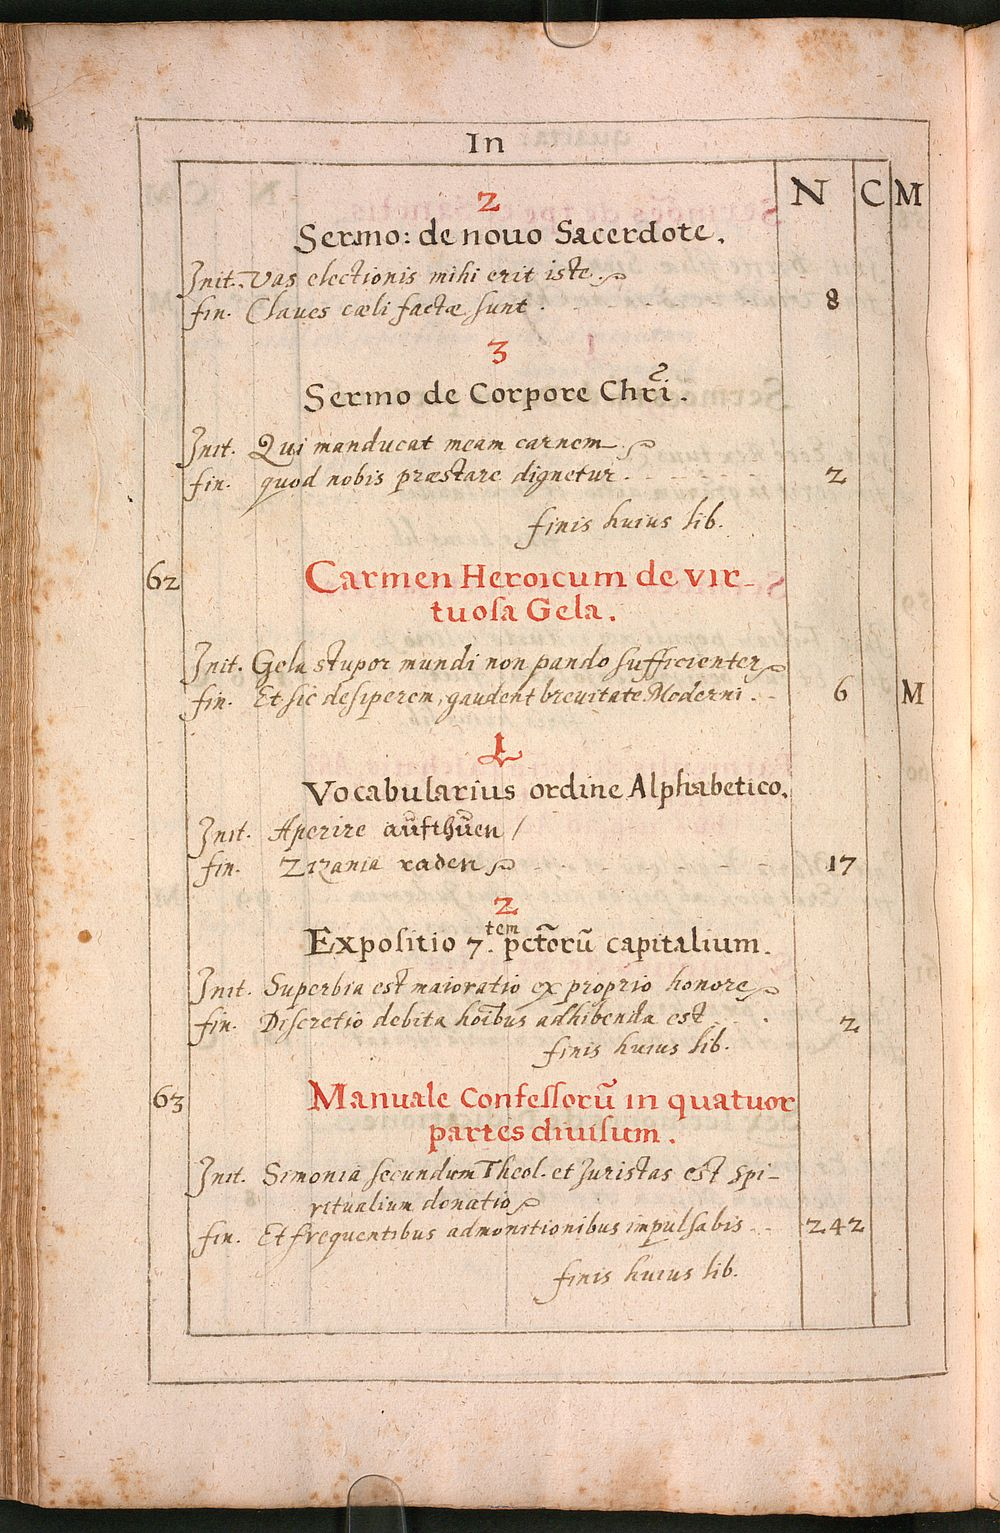 In
N C M
2
Sermo: de nouo Sacerdote.
Init. Vas electionis mihi erit iste.
fin. Claues cæli factæ sunt. 8
3
Sermo de Corpore Chr̄i.
Init. Qui manducat meam carnem
fin. quod nobis præstare dignetur. 2
finis huius lib.
62 Carmen Heroicum de vir-
tuosa Gela.
Init. Gela stupor mundi non pando sufficienter
fin. Et sic desiperem, gaudent breuitate Moderni. 6 M
1
Vocabularius ordine Alphabetico.
Init. Aperire aŭfthŭen /
fin. Zizania raden 17
2
Expositio 7.tem pctōrū capitalium.
Init. Superbia est maioratio ex proprio honore
fin. Discretio debita hoībus adhibenda est 2
finis huius lib.
63 Manuale Confessorū in quatuor
partes diuisum.
Init. Simonia secundum Theol. et Juristas est spi-
ritualium donatio
fin. Et frequentibus admonitionibus impulsabis 242
finis huius lib.